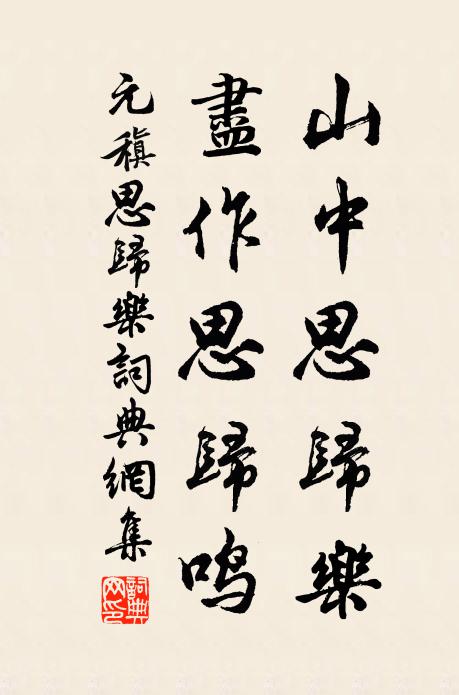 山中思歸樂
盡作思歸鳴
元稹思歸樂詞典網集
詞典网印